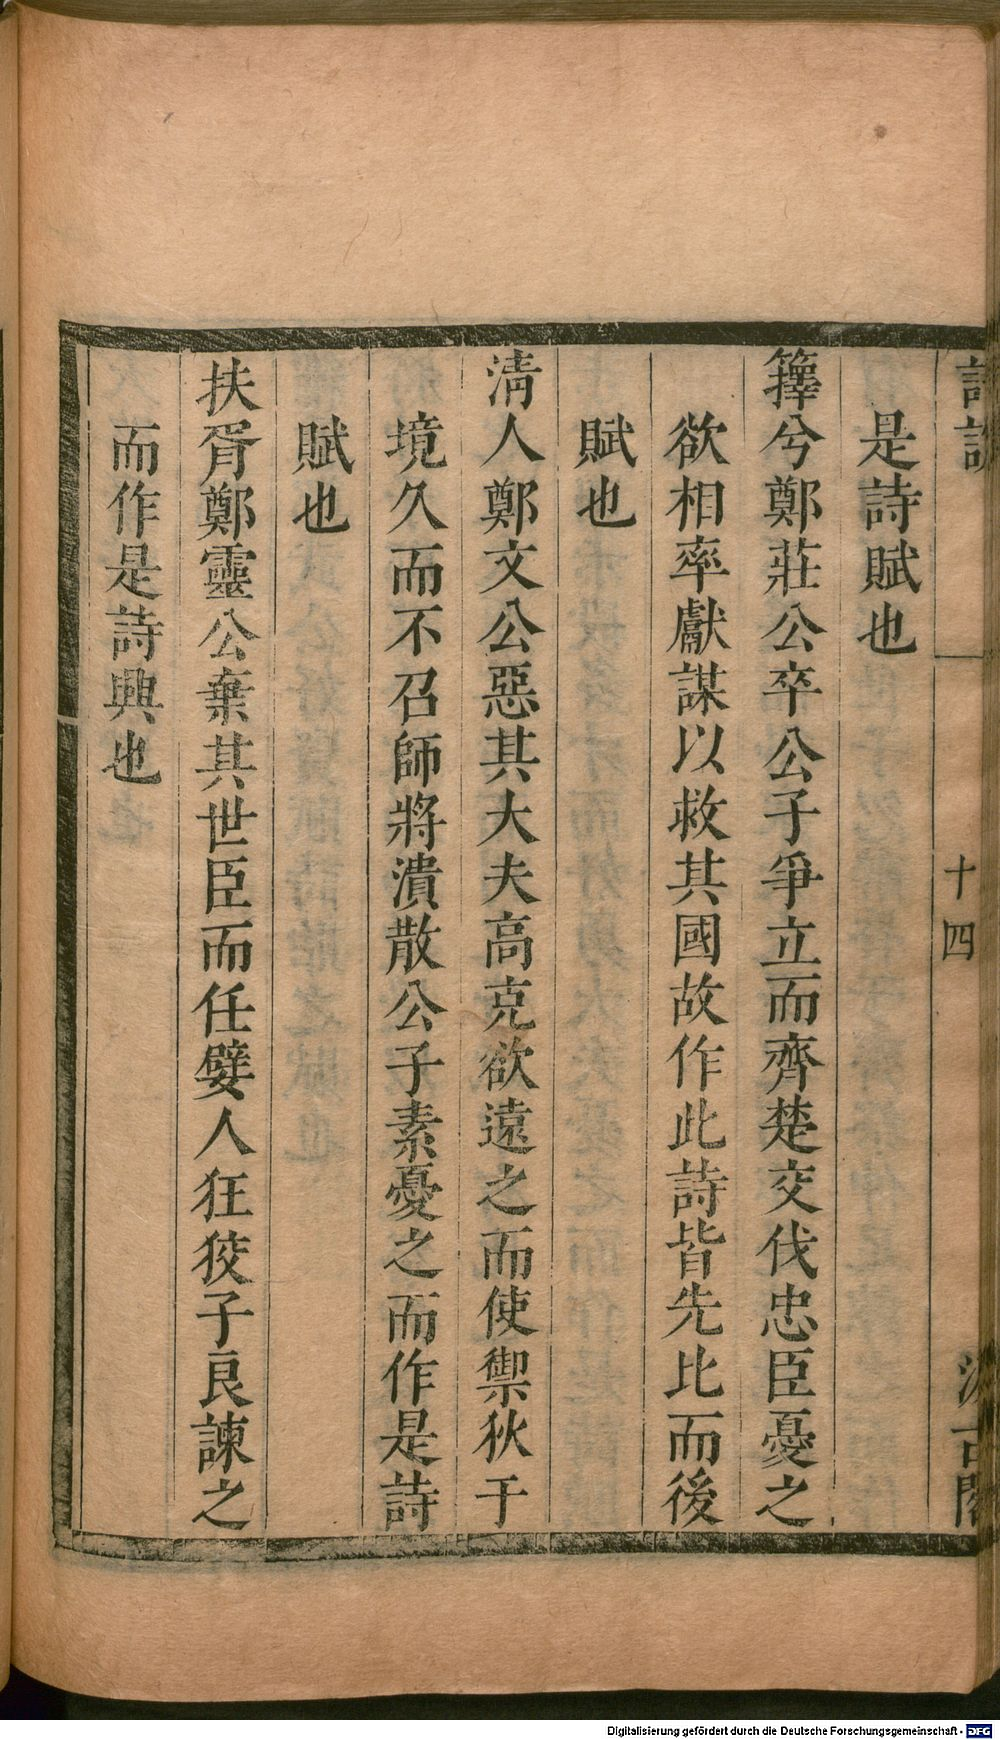 詩說
十四
汲古閣
是詩賦也
籜兮鄭莊公卒公子爭立而齊楚交伐忠臣憂之
欲相率獻謀以救其國故作此詩皆先比而後
賦也
淸人鄭文公惡其大夫高克欲遠之而使禦狄于
境久而不召師將潰散公子素憂之而作是詩
賦也
扶胥鄭靈公棄其世臣而任嬖人狂狡子良諫之
而作是詩興也
Digitalisierung gefördert durch die Deutsche Forschungsgemeinschaft - DFG